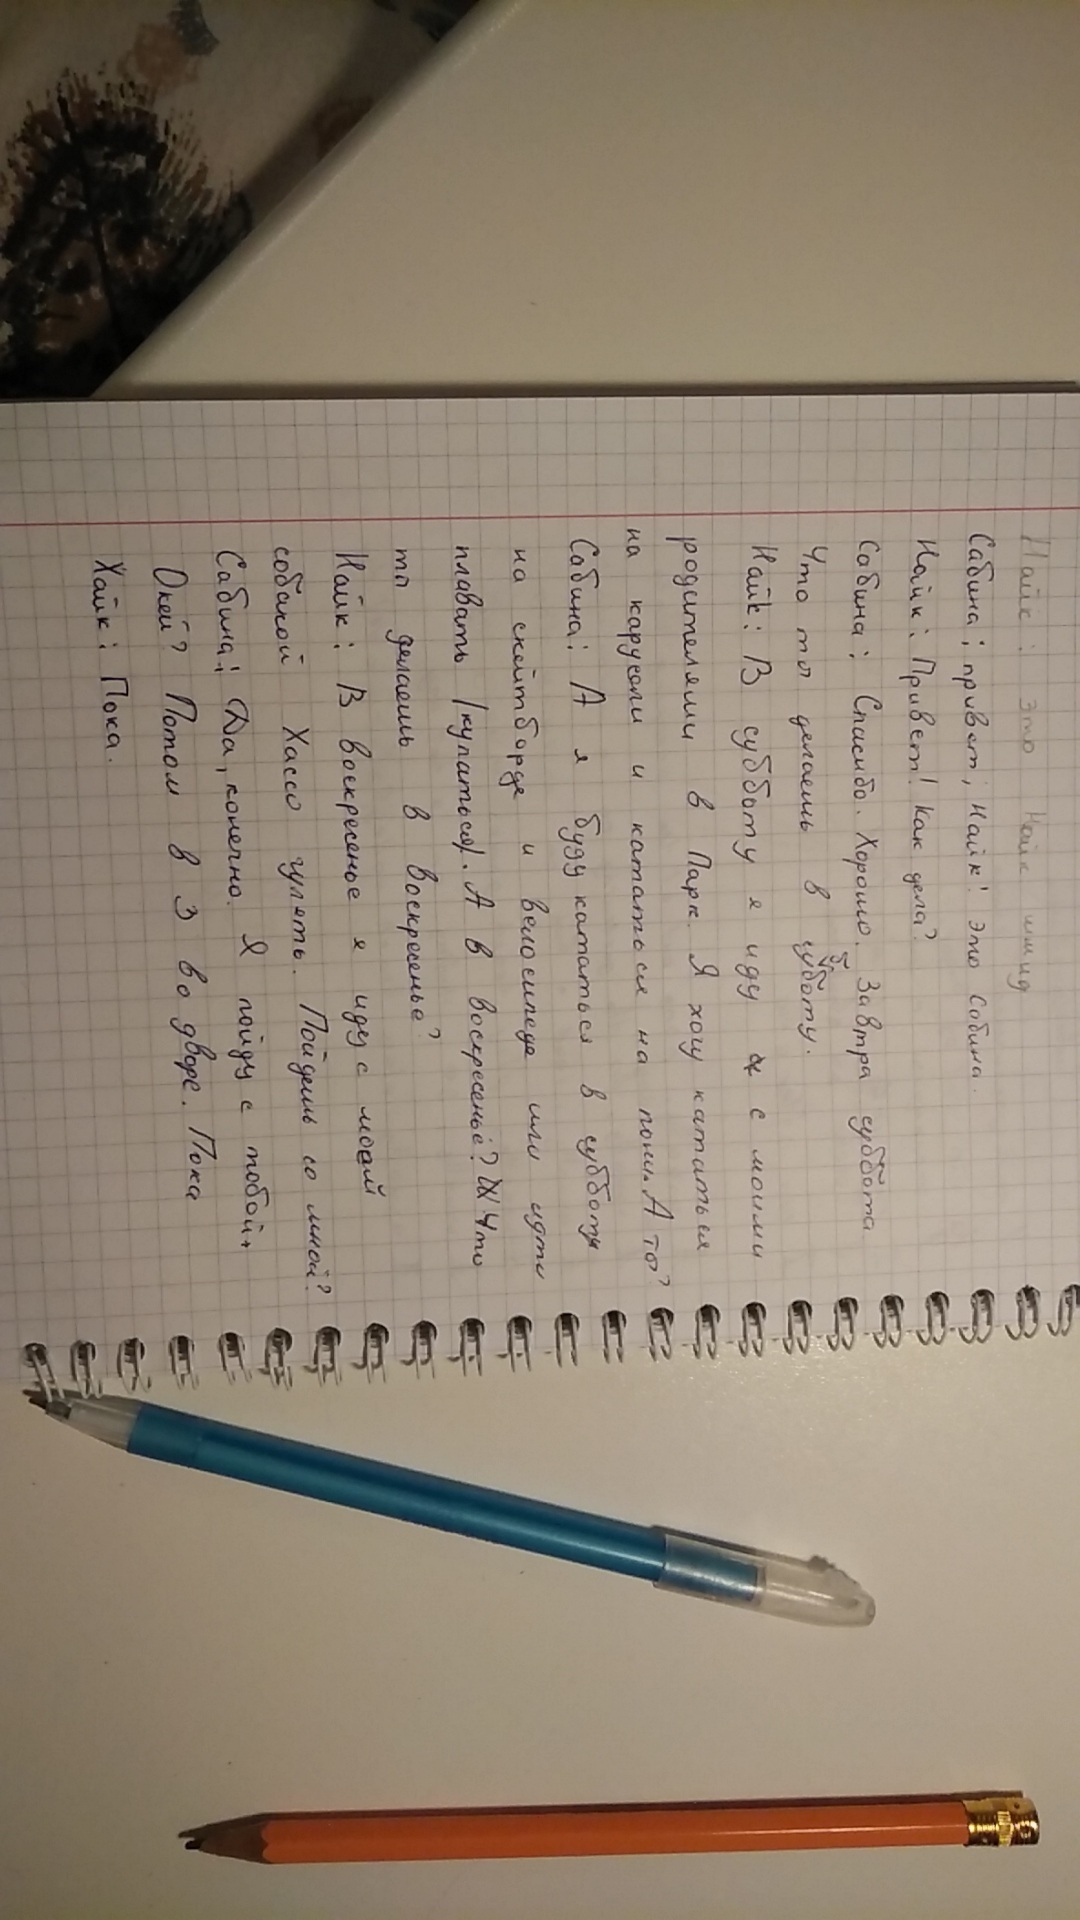 Найк: это Найк шмид
Сабина: привет, Найк! это Сабина.
Найк: Привет! Как дела?
Сабина: Спасибо. Хорошо. Завтра суббота
Что ты делаешь в субботу.
Найк: В субботу я иду с моими
родителями в Парк. Я хочу кататься
на карусели и кататься на пони. А ты?
Сабина: А я буду кататься в субботу
на скейтборде и велосипеде или идти
плавать /купаться/. А в воскресенье? Что
ты делаешь в воскресенье?
Найк: В воскресенье я иду с моей
собакой Хассо гулять. Пойдешь со мной?
Сабина: Да, конечно. Я пойду с тобой.
Окей? Потом в 3 во дворе. Пока
Хайк: Пока.